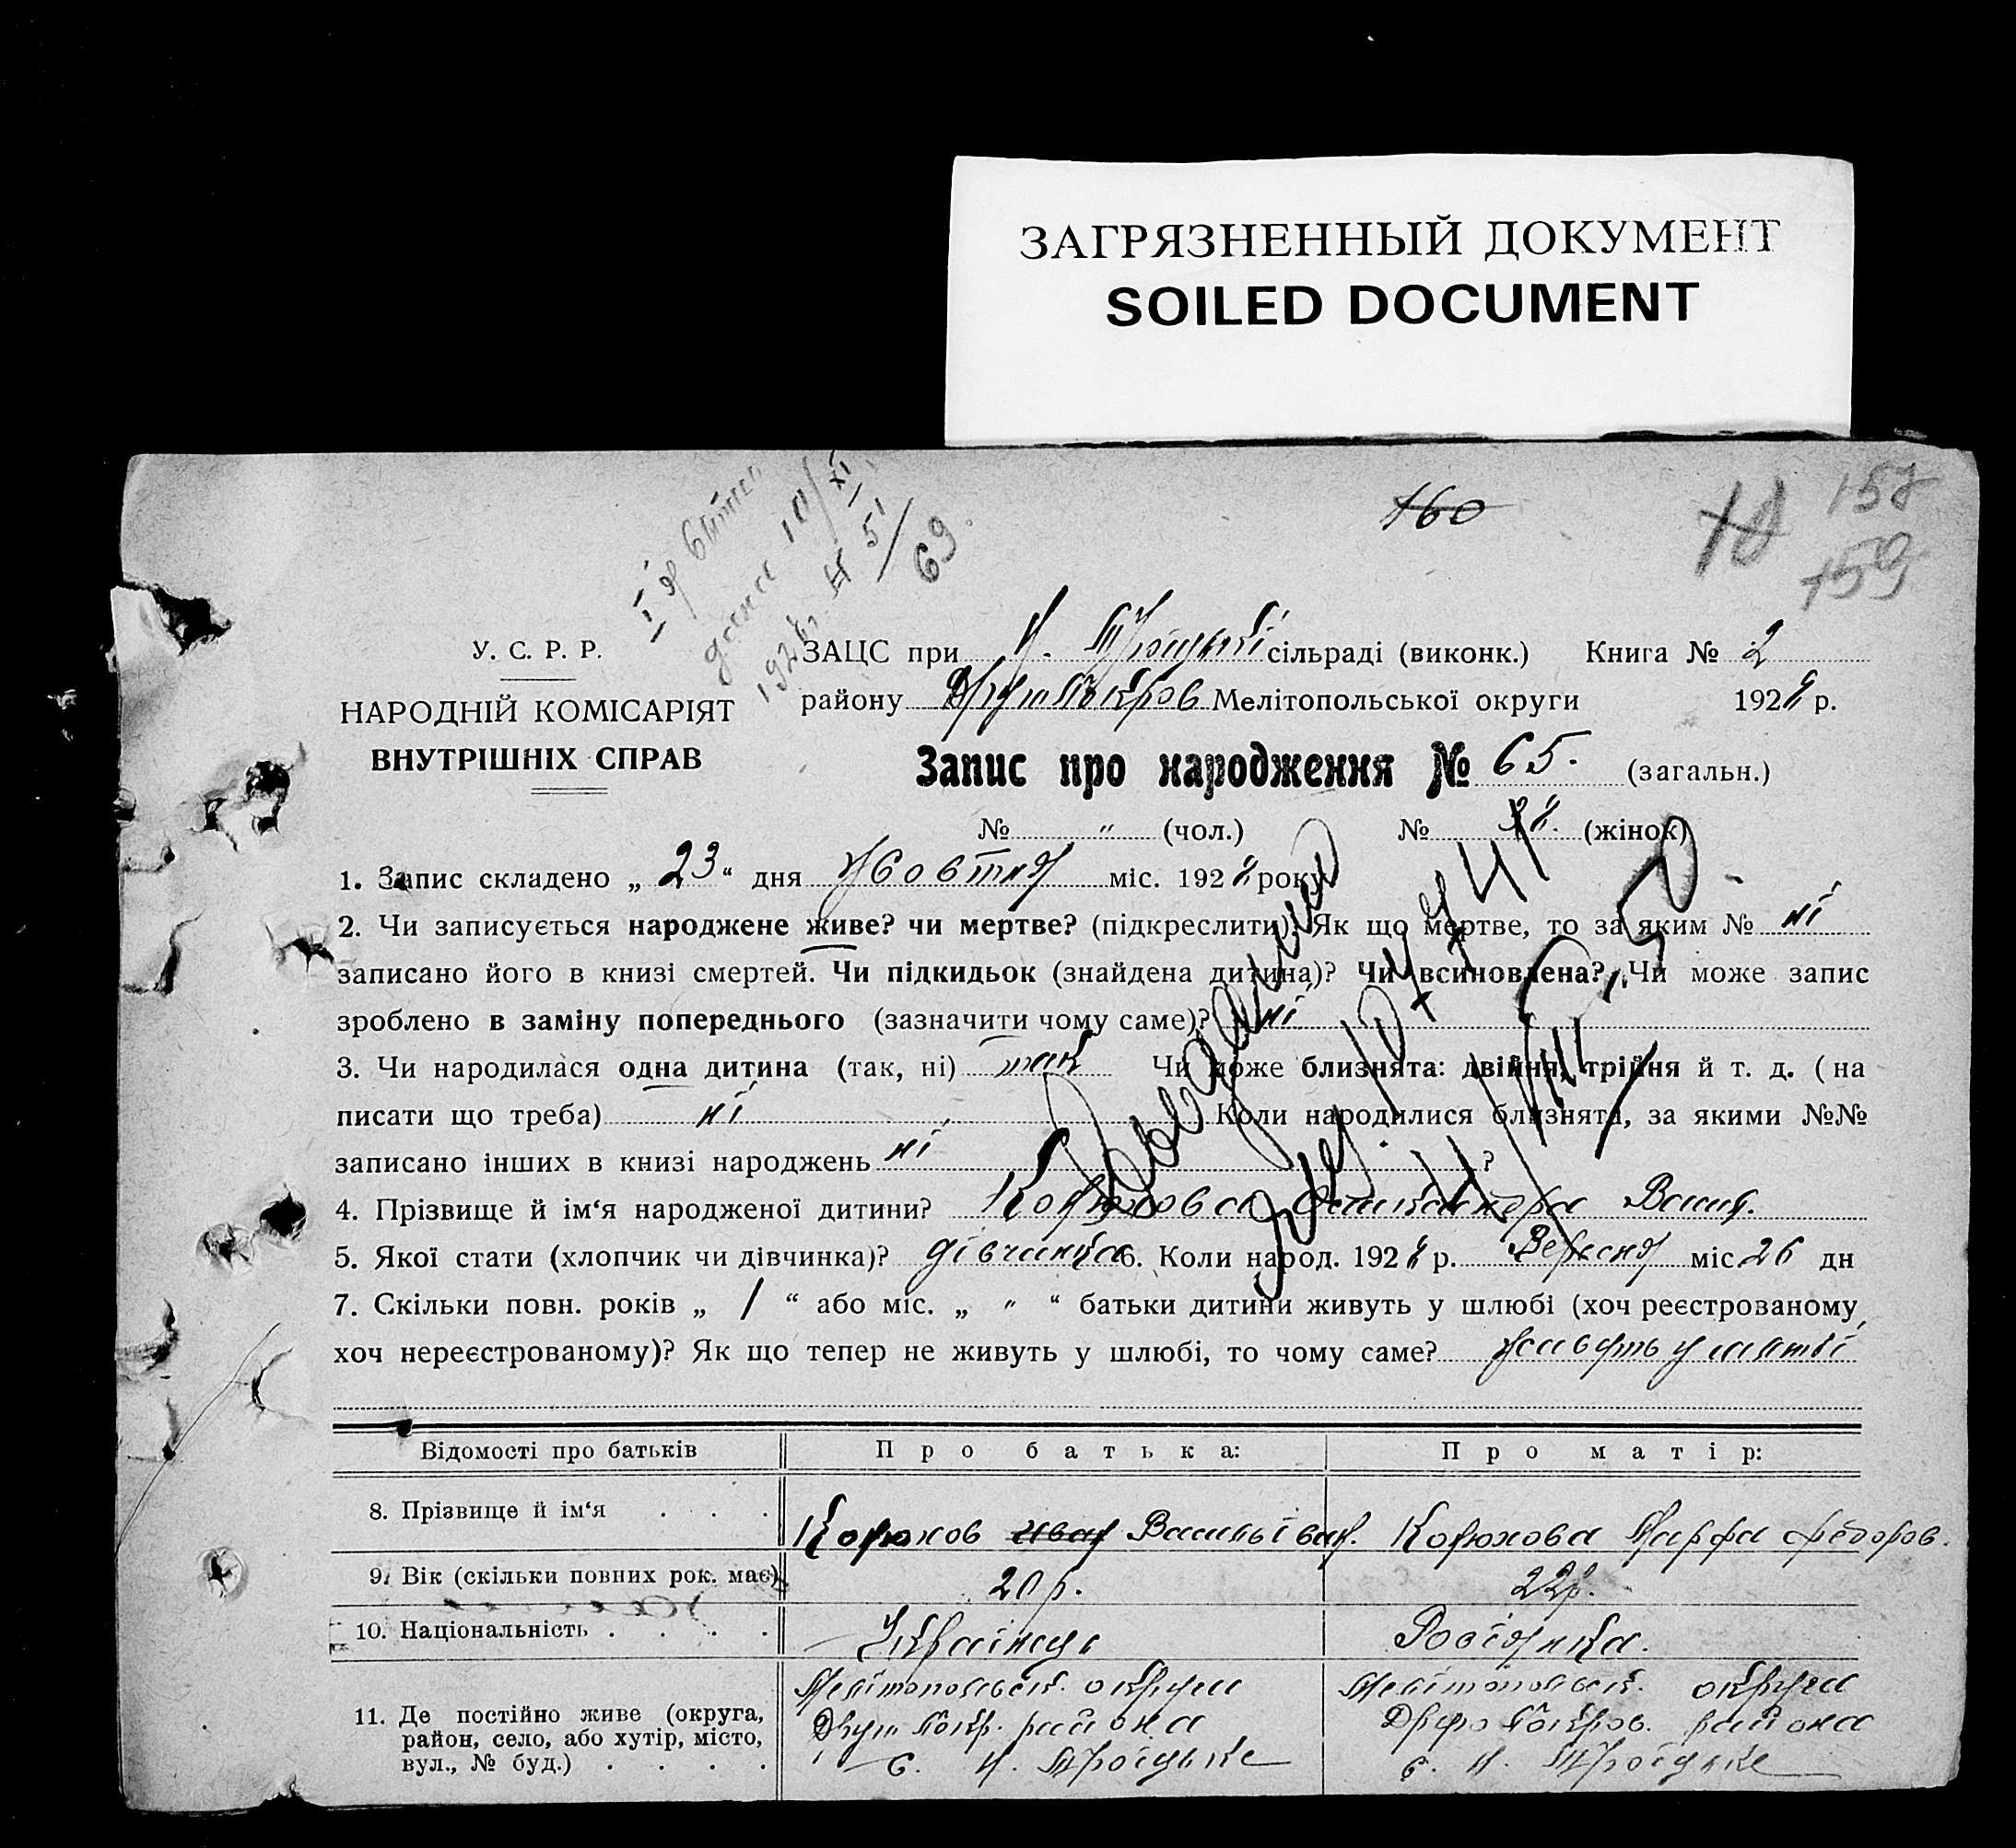 ЗАГРЯЗНЕННЫЙ ДОКУМЕНТ
SOILED DOCUMENT
160
158
159
69
У. С. Р. Р.
НАРОДНІЙ КОМІСАРІЯТ
ВНУТРІШНІХ СПРАВ
ЗАЦС при Н. Троіцькі сільраді (виконк.) Книга № 2
району Мелітопольської округи 192 р.
Запис про народження № 65. (загальн.)
№ " (чол.) № (жінок)
1. Запис складено „ 23 “ дня жовтня міс. 192 року
2. Чи записується народжене живе? чи мертве? (підкреслити). Як що мертве, то за яким № ні
записано його в книзі смертей. Чи підкидьок (знайдена дитина)? Чи всиновлена? Чи може запис
зроблено в заміну попереднього (зазначити чому саме)? ні
3. Чи народилася одна дитина (так, ні) так Чи може близнята: двійня, трійня й т. д. ( на
писати що треба) ні Коли народилися близнята, за якими №№
записано інших в книзі народжень ні ?
4. Прізвище й ім‘я народженої дитини? Корюхова Васил.
5. Якої стати (хлопчик чи дівчинка)? дівчинка 6. Коли народ. 192 р. Вересня міс 26 дн
7. Скільки повн. років „ 1 “ або міс. „ " “ батьки дитини живуть у шлюбі (хоч реєстрованому,
хоч нереєстрованому)? Як що тепер не живуть у шлюбі, то чому саме?
Відомості про батьків Про батька: Про матір:
8. Прізвище й ім‘я . . . Корюхов Иван Васильівич. Корюхова Марфа Федоров.
9. Вік (скільки повних рок. має) 20 р. 22 р.
10. Національність . . . . Украінець Росіянка.
11. Де постійно живе (округа, Мелітопольськ. округи Мелітопольськ. округи
район, село, або хутір, місто, района района
вул., № буд.) . . . . с. Н. Троіцьке с. Н. Троіцьке